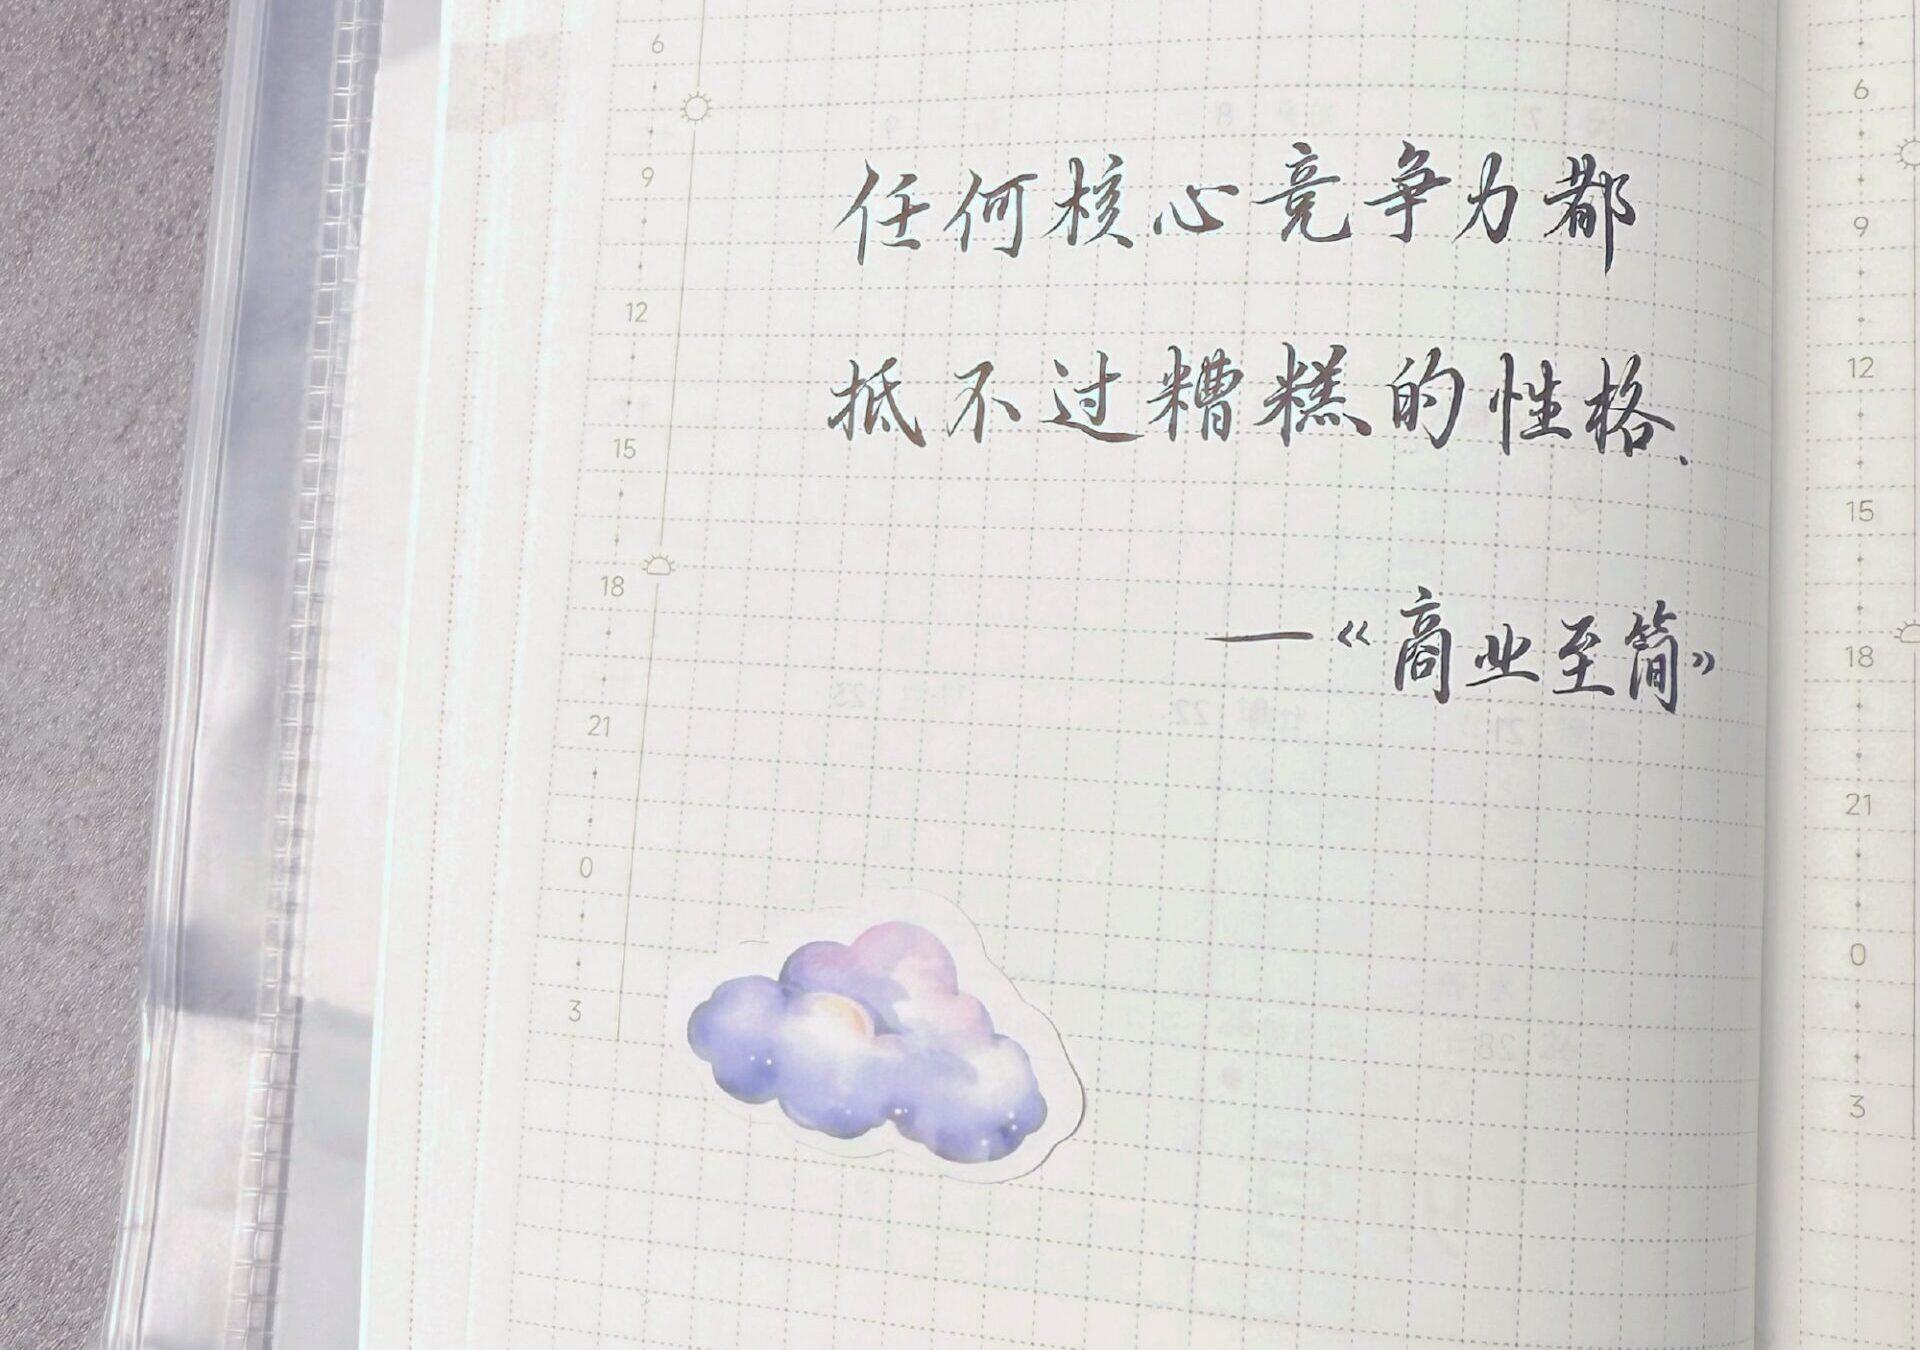 6
9
12
15
18
21
0
3
任何核心竞争力都
抵不过糟糕的性格.
—《商业至简》
6
9
12
15
18
21
0
3